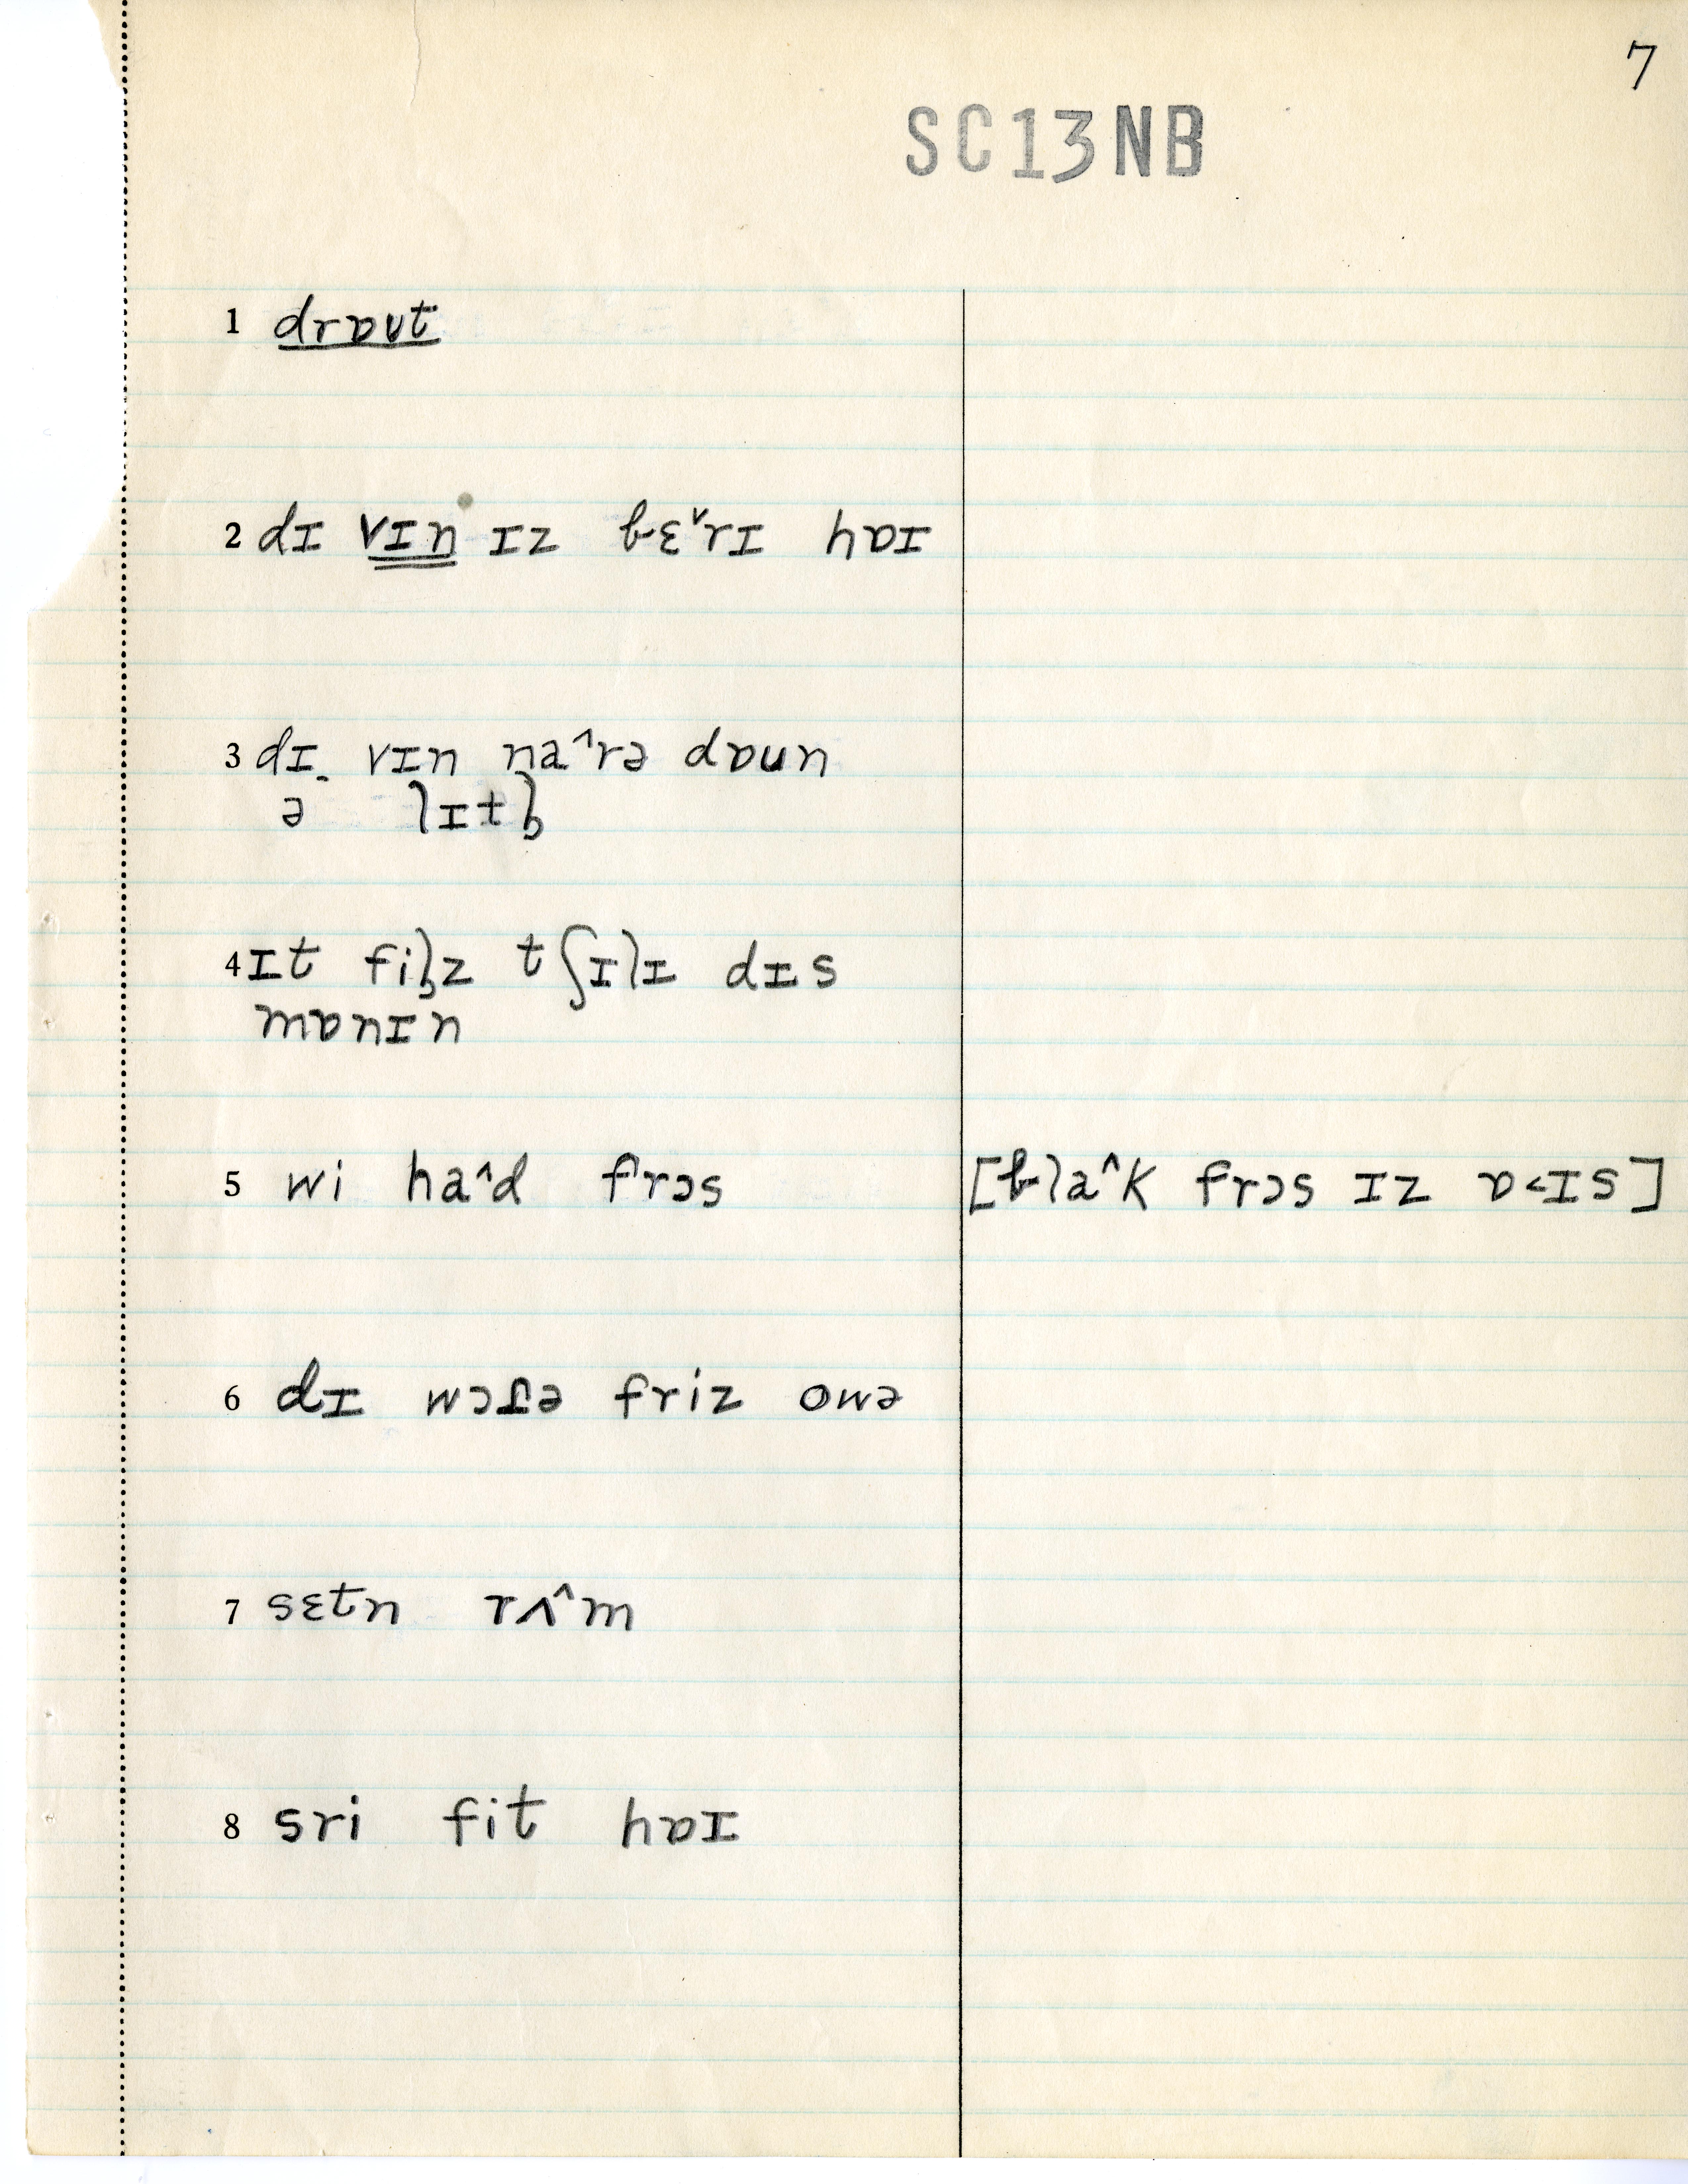 7
SC13NB
1 drɒut
2 dɪ vɪn ɪz bɛ˅rɪ hɒɪ
3 dɪ vɪn na^rə dɒun
ə lɪtl̩
4 ɪt fil̩z tʃɪlɪ dɪs
mɒnɪn
5 wi ha^d frɔs [bla^k frɔs ɪz ɒ<ɪs]
6 dɪ friz owə
7 sɛtn rʌ^m
8 sri fit hɒɪ